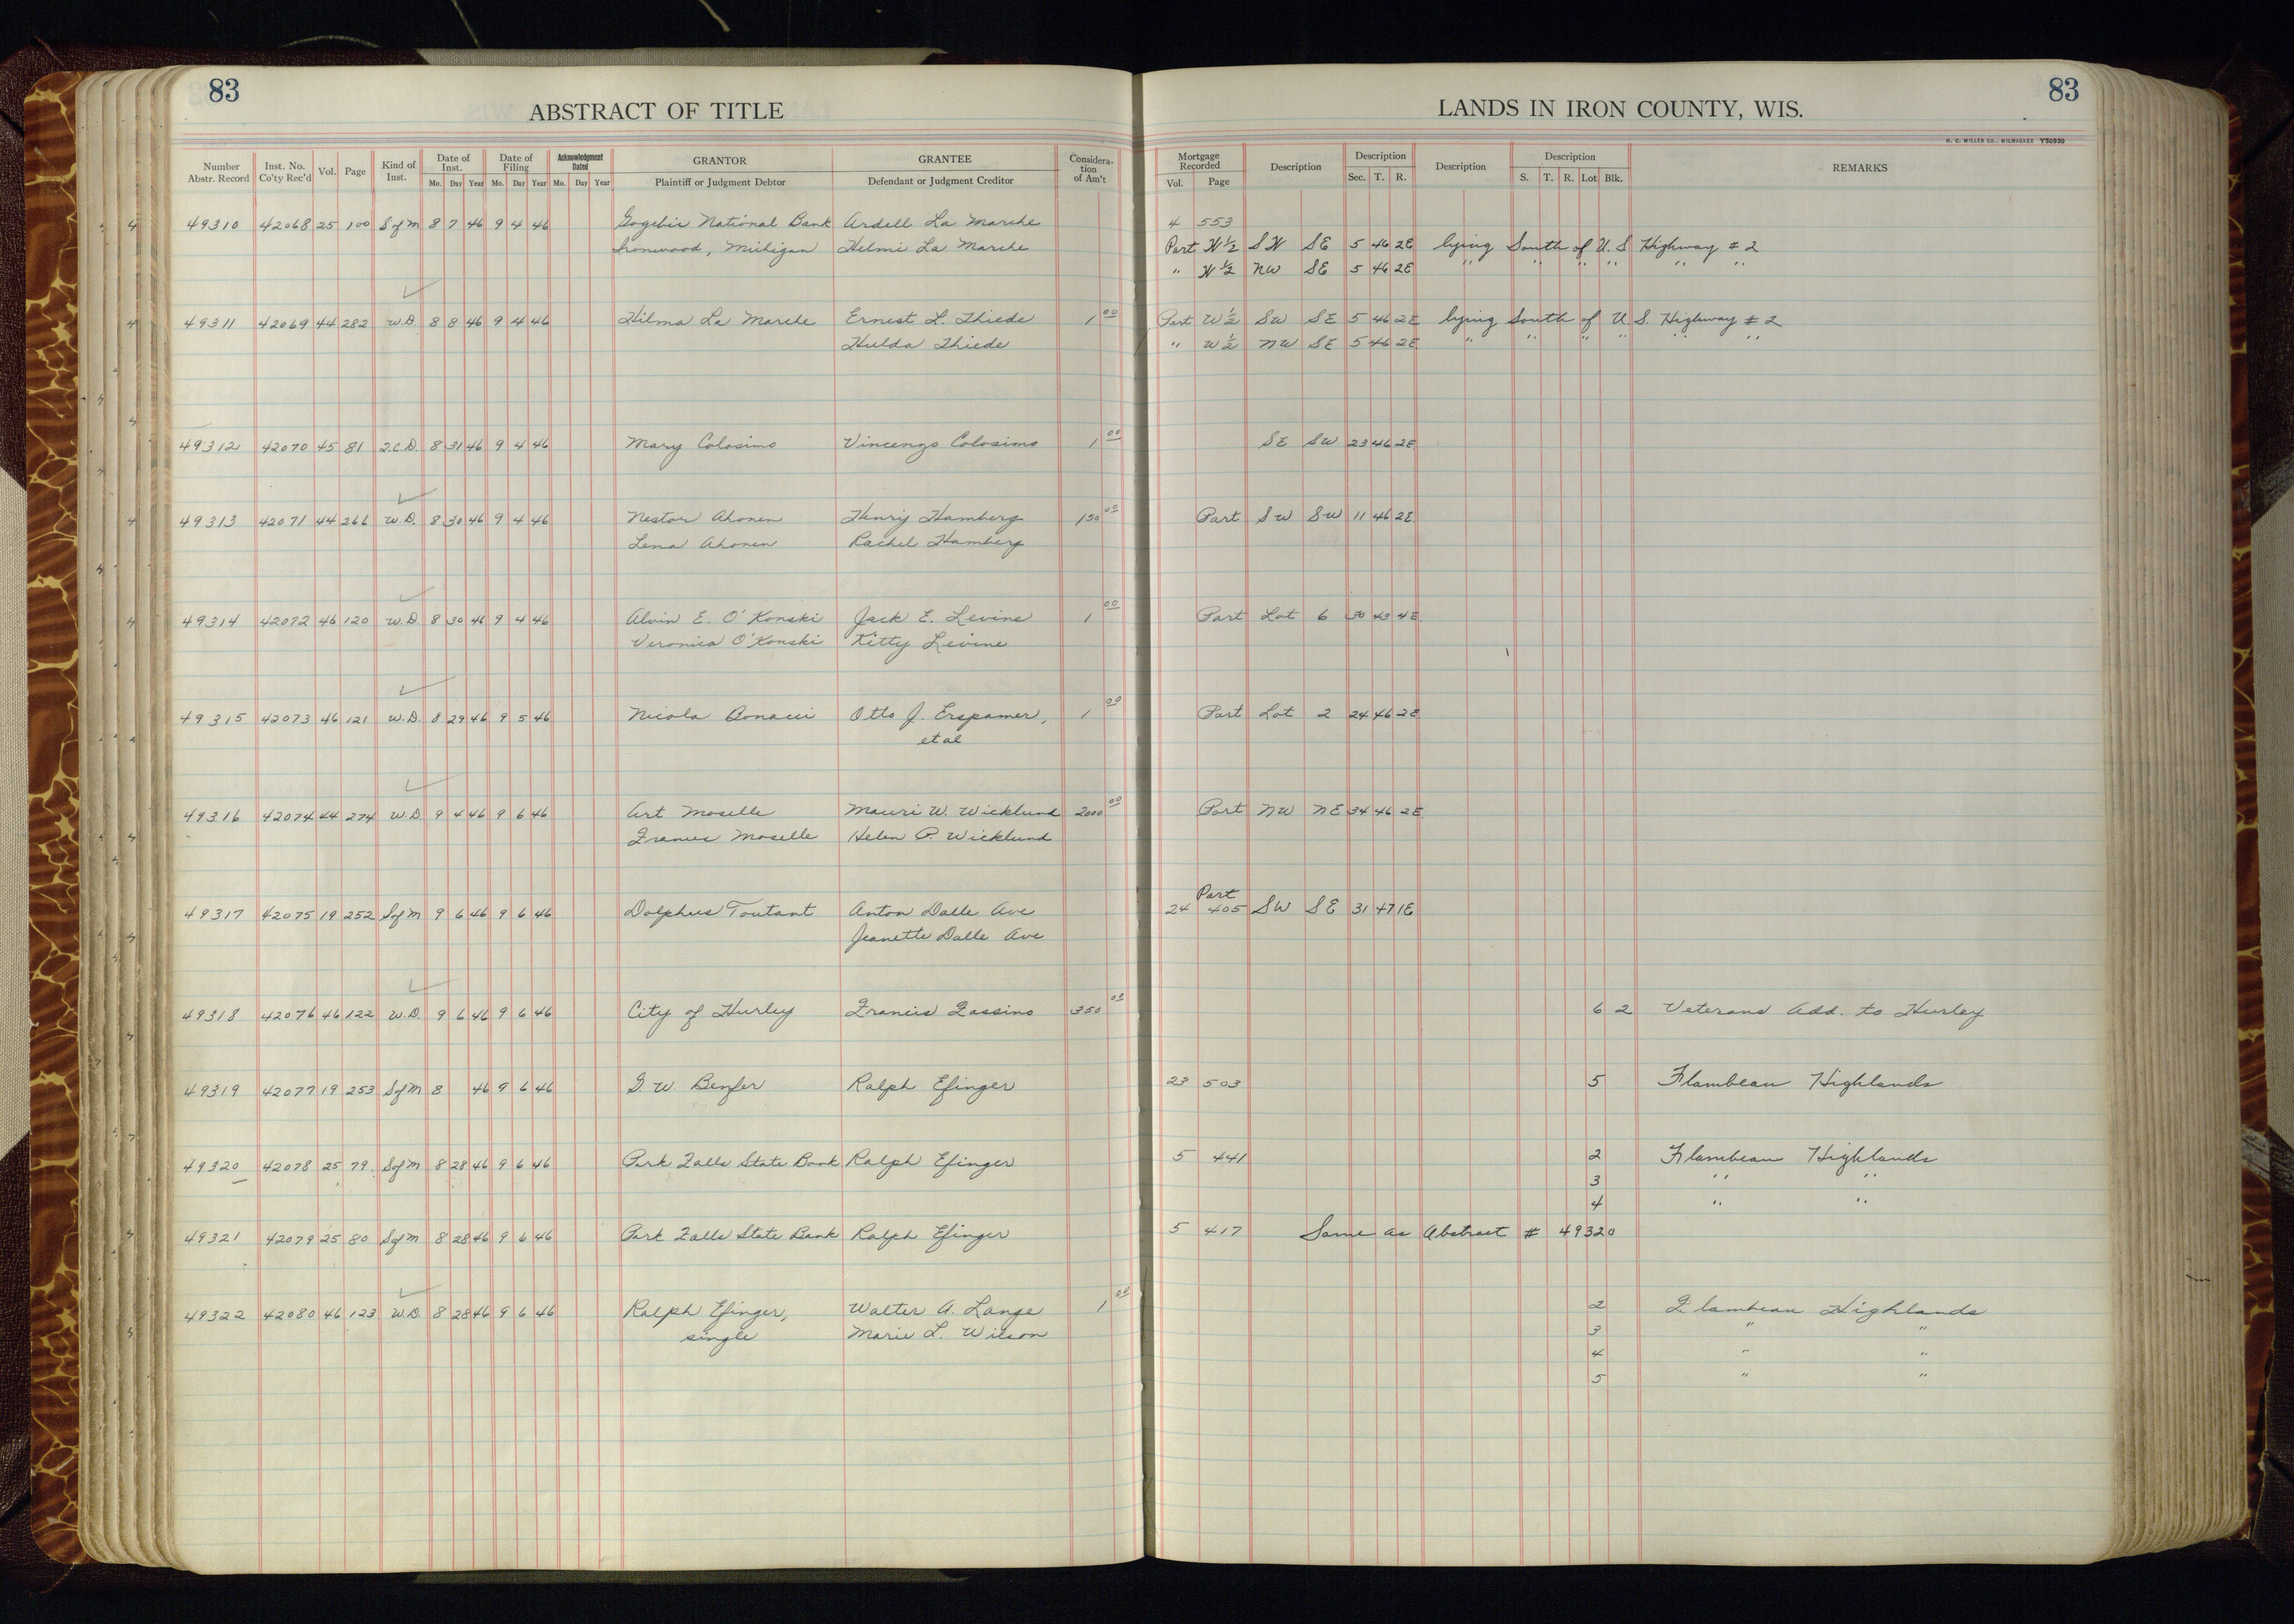 83
83
ABSTRACT OF TITLE
LANDS IN IRON COUNTY, WIS.
H. C. MILLER CO., MILWAUKEE Y50930
Number Abstr. Record Inst. No. Co'ty Rec'd Vol. Page Kind of Inst. Date of Inst. Mo. Day Year Date of Filing Mo. Day Year Acknowledgment Dated Mo. Day Year GRANTOR Plaintiff or Judgment Debtor GRANTEE Defendant or Judgment Creditor Consideration of Am't Mortgage Recorded Vol. Page Description Description Sec. T. R. Description Description S. T. R. Lot Blk. REMARKS
49310 42068 25 100 S of M 8 7 46 9 4 46 Gogebic National Bank Ardell La Marche 4 553
Ironwood, Michigan Helmi La Marche Part W½ SW SE 5 46 2E lying South of U.S Highway # 2
" W½ NW SE 5 46 2E " " " " " "
49311 42069 44 282 W.D. 8 8 46 9 4 46 Hilma La Marche Ernest L. Thiede 1 00 Part W½ SW SE 5 46 2E lying South of U.S. Highway # 2
Hulda Thiede " W½ NW SE 5 46 2E " " " " " "
49312 42070 45 81 Q.C.D. 8 31 46 9 4 46 Mary Colosimo Vincenzo Colosimo 1 00 SE SW 23 46 2E
49313 42071 44 266 W.D. 8 30 46 9 4 46 Nestor Ahonen Henry Hamberg 150 00 Part SW SW 11 46 2E
Lena Ahonen Rachel Hamberg
49314 42072 46 120 W.D. 8 30 46 9 4 46 Alvin E. O'Konski Jack E. Levine 1 00 Part Lot 6 30 43 4E
Veronica O'Konski Kitty Levine
49315 42073 46 121 W.D. 8 29 46 9 5 46 Nicola Bonacci Otto J. Erspamer, 1 00 Part Lot 2 24 46 2E
et al
49316 42074 44 274 W.D. 9 4 46 9 6 46 Art Moselle Mauri W. Wicklund 2000 00 Part NW NE 34 46 2E
Frances Moselle Helen P. Wicklund
Part
49317 42075 19 252 S of M 9 6 46 9 6 46 Dolphus Toutant Anton Dalle Ave 24 405 SW SE 31 47 1E
Jeanette Dalle Ave
49318 42076 46 122 W.D. 9 6 46 9 6 46 City of Hurley Francis Zassino 350 00 6 2 Veterans Add. to Hurley
49319 42077 19 253 S of M 8 46 9 6 46 G. W. Benfer Ralph Efinger 23 503 5 Flambeau Highlands
49320 42078 25 79 S of M 8 28 46 9 6 46 Park Falls State Bank Ralph Efinger 5 441 2 Flambeau Highlands
3 " "
4 " "
49321 42079 25 80 S of M 8 28 46 9 6 46 Park Falls State Bank Ralph Efinger 5 417 Same as Abstract # 49320
49322 42080 46 123 W.D. 8 28 46 9 6 46 Ralph Efinger, Walter A. Lange 1 00 2 Flambeau Highlands
single Marie L. Wilson 3 " "
4 " "
5 " "